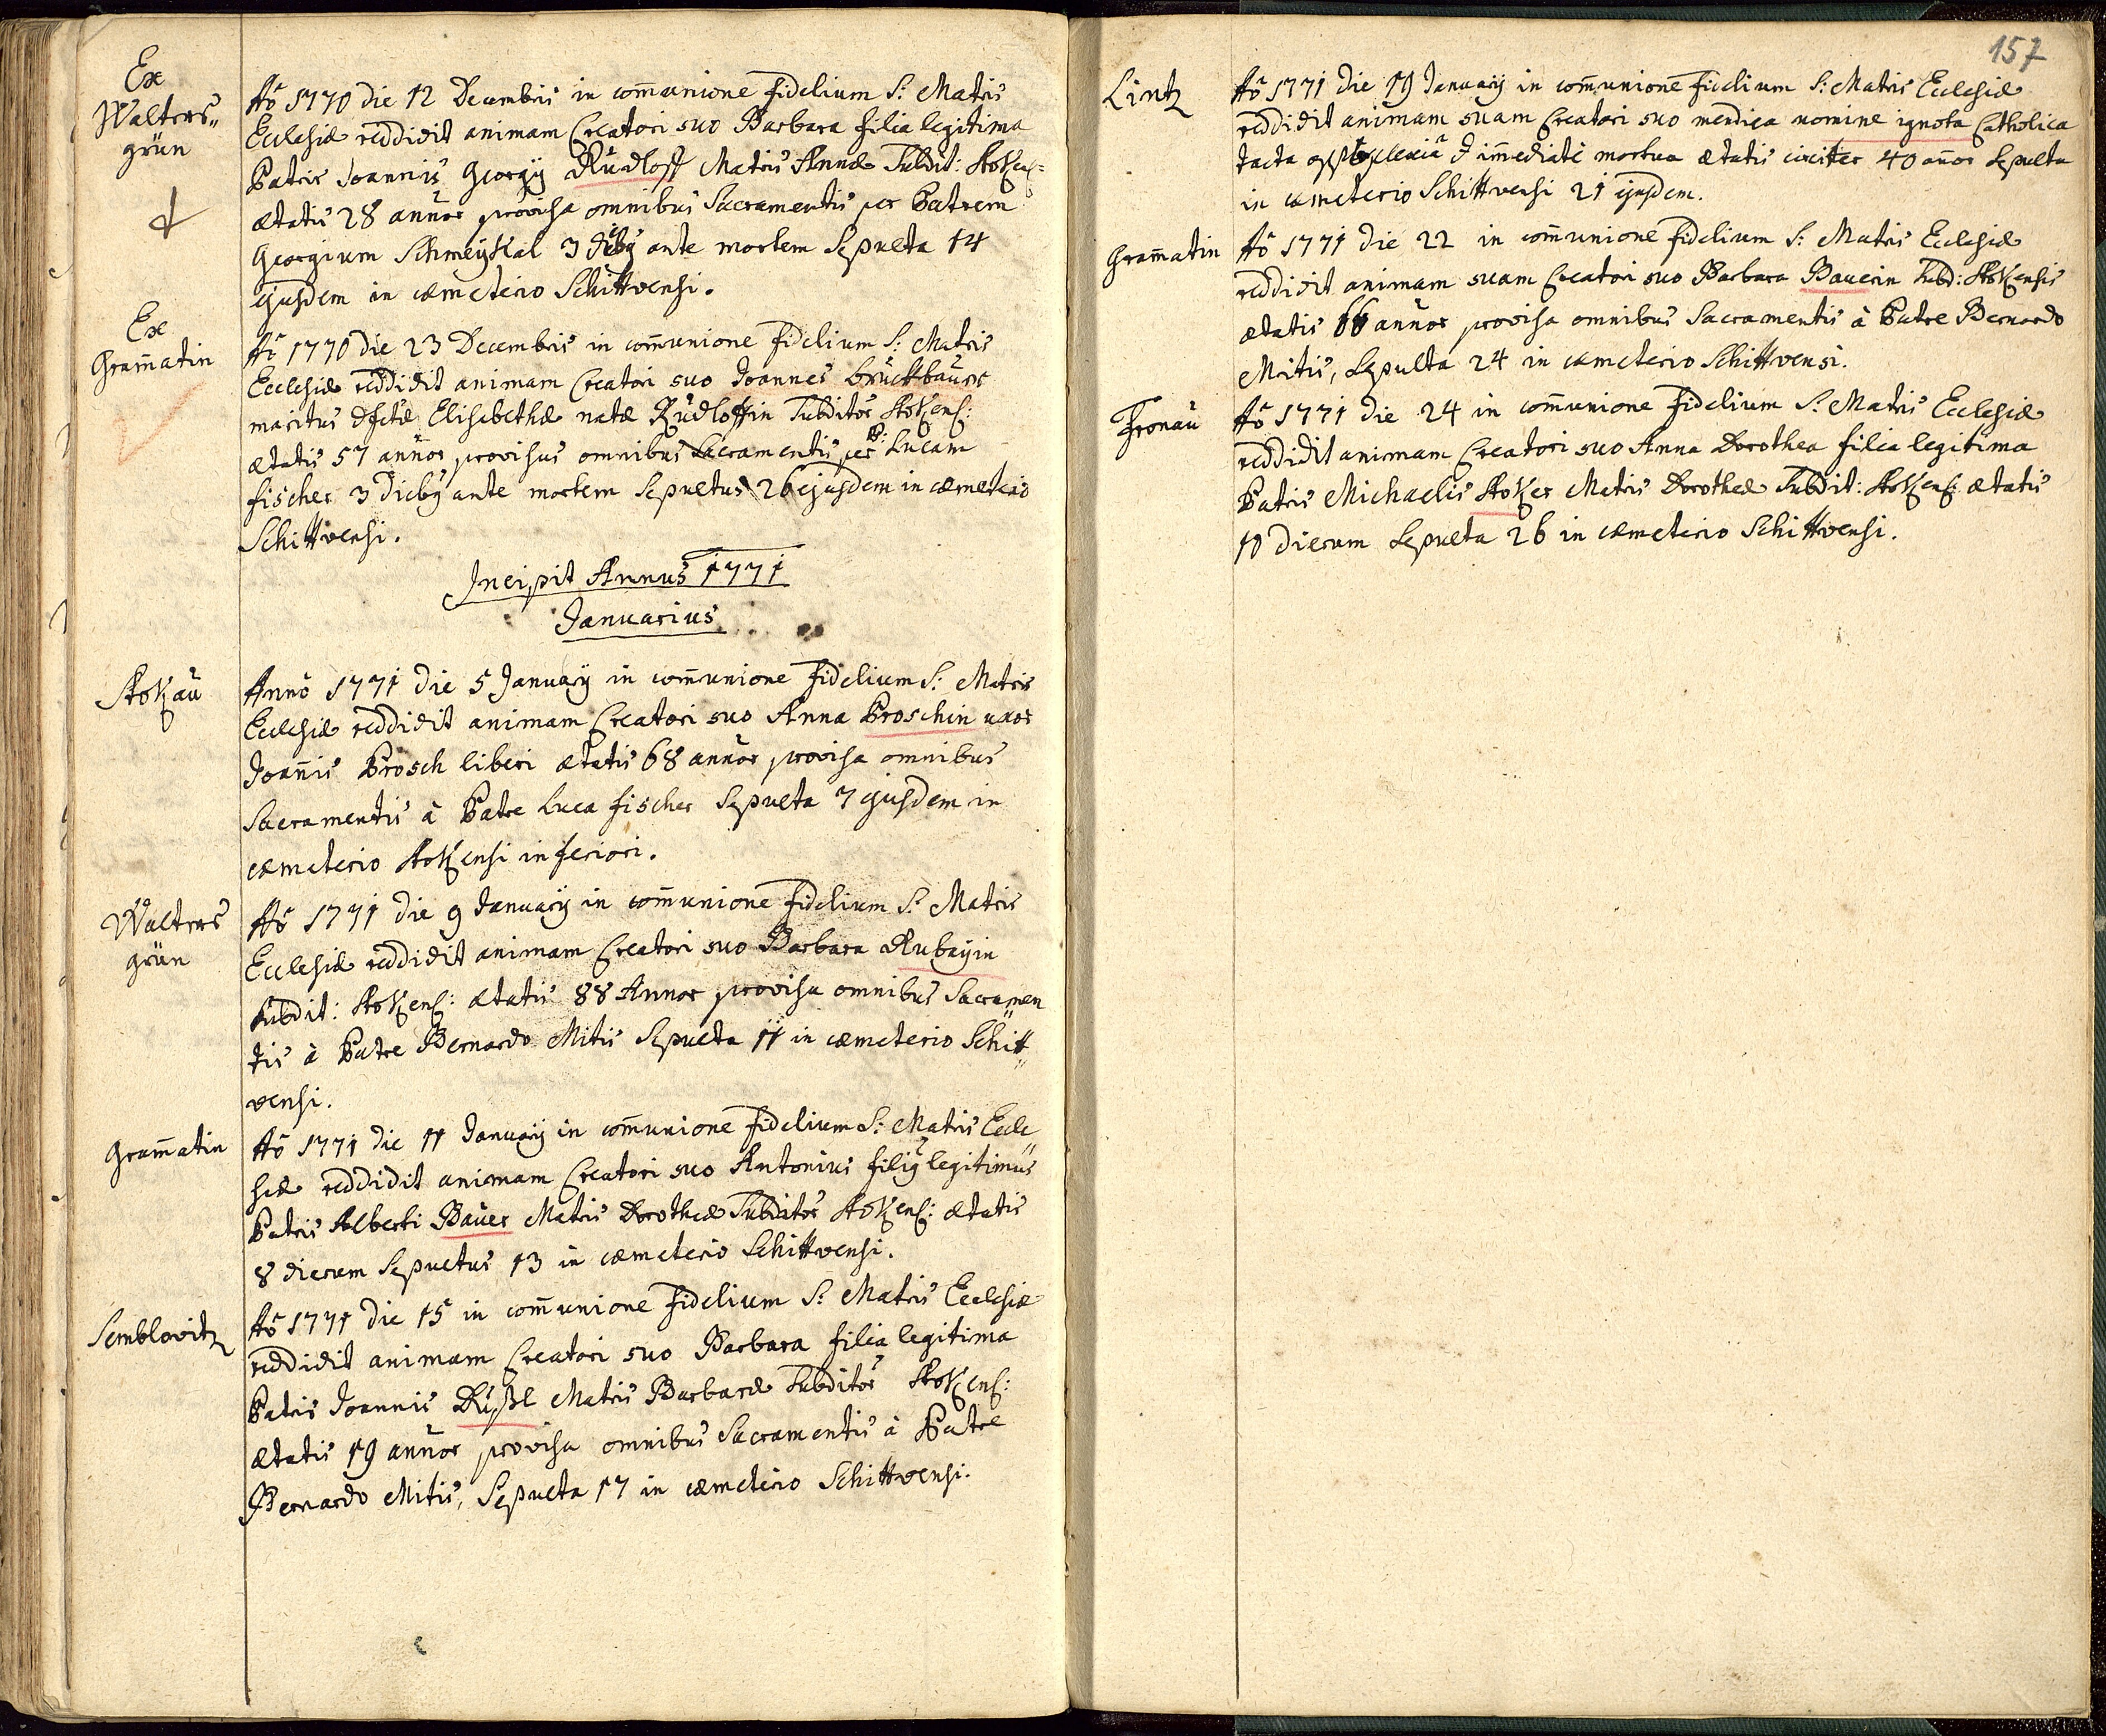 Ex
Walters„
grün
Aõ 1770 die 12 Decembris in com̄unione Fidelium S: Matris
Ecclesiæ reddidit animam Creatori suo Barbara filia legitima
Patris Joannis Georgÿ Rudloff Matris Annæ Subdit: Stokens:
ætatis 28 annor provisa omnibus Sacramentis per Patrem
Georgium Schmeÿkal 3 dieby ante mortem Sepulta 14
ejusdem in cæmeterio Schittvensi.
Ex
Gram̄atin
Aõ 1770 die 23 Decembris in com̄unione Fidelium S: Matris
Ecclesiæ reddidit animam Creatori suo Joannes Bruckbauer
maritus Elisebethæ natæ Rudloffin Subditor Stokens:
ætatis 57 annor provisus omnibus Sacramentis per P: Lucam
Fischer 3 Dieby ante mortem Sepultus 26 ejusdem in cæmeterio
Schittvensi.
Incipit Annus 1771
Januarius
Stokau
Anno 1771 die 5 Januarÿ in com̄unione Fidelium S: Matris
Ecclesiæ reddidit animam Creatori suo Anna Proschin uxor
Joan̄is Prosch liberi ætatis 68 annor provisa omnibus
Sacramentis à Patre Luca Fischer Sepulta 7 ejusdem in
cæmeterio Stokensi inferiori.
Walters
grün
Aõ 1771 die 9 Januarÿ in com̄unione Fidelium S: Matris
Ecclesiæ reddidit animam Creatori suo Barbara Rubaÿin
Subdit: Stokens: ætatis 88 Annor provisa omnibus Sacramen„
tis à Patre Bernardo Mitis Sepulta 11 in cæmeterio Schitt„
vensi.
Gram̄atin
Aõ 1771 die 11 Januarÿ in com̄unione Fidelium S: Matris Eccle„
siæ reddidit animam Creatori suo Antonius filiy legitimus
Patris Alberti Bauer Matris Dorotheæ Subditor Stokens: ætatis
8 dierum Sepultus 13 in cæmeterio Schittvensi.
Semblovitz
Aõ 1771 die 15 in com̄unione Fidelium S: Matris Ecclesiæ
reddidit animam Creatori suo Barbara filia legitima
Patris Joannis Rußl Matris Barbaræ Subditor Stokens:
ætatis 19 annor provisa omnibus Sacramentis à Patre
Bernardo Mitis, Sepulta 17 in cæmeterio Schittvensi.
157
Lintz
Aõ 1771 die 19 Januarÿ in com̄unione Fidelium S: Matris Ecclesiæ
reddidit animam suam Creatori suo mendica nomine ignota Catholica
tacta im̄ediate mortua ætatis circiter 40 an̄or Sepulta
in cæmeterio Schittvensi 21 ejusdem.
Gram̄atin
Aõ 1771 die 22 in com̄unione Fidelium S: Matris Ecclesiæ
reddidit animam suam Creatori suo Barbara Bauerin Subd: Stokensis
ætatis 66 annor provisa omnibus Sacramentis à Patre Bernardo
Mitis, Sepulta 24 in cæmeterio Schittvensi.
Fronau
Aõ 1771 die 24 in com̄unione Fidelium S: Matris Ecclesiæ
reddidit animam Creatori suo Anna Dorothea filia legitima
Patris Michaelis Stoker Matris Dorotheæ Subdit: Stokens: ætatis
10 dierum Sepulta 26 in cæmeterio Schittvensi.